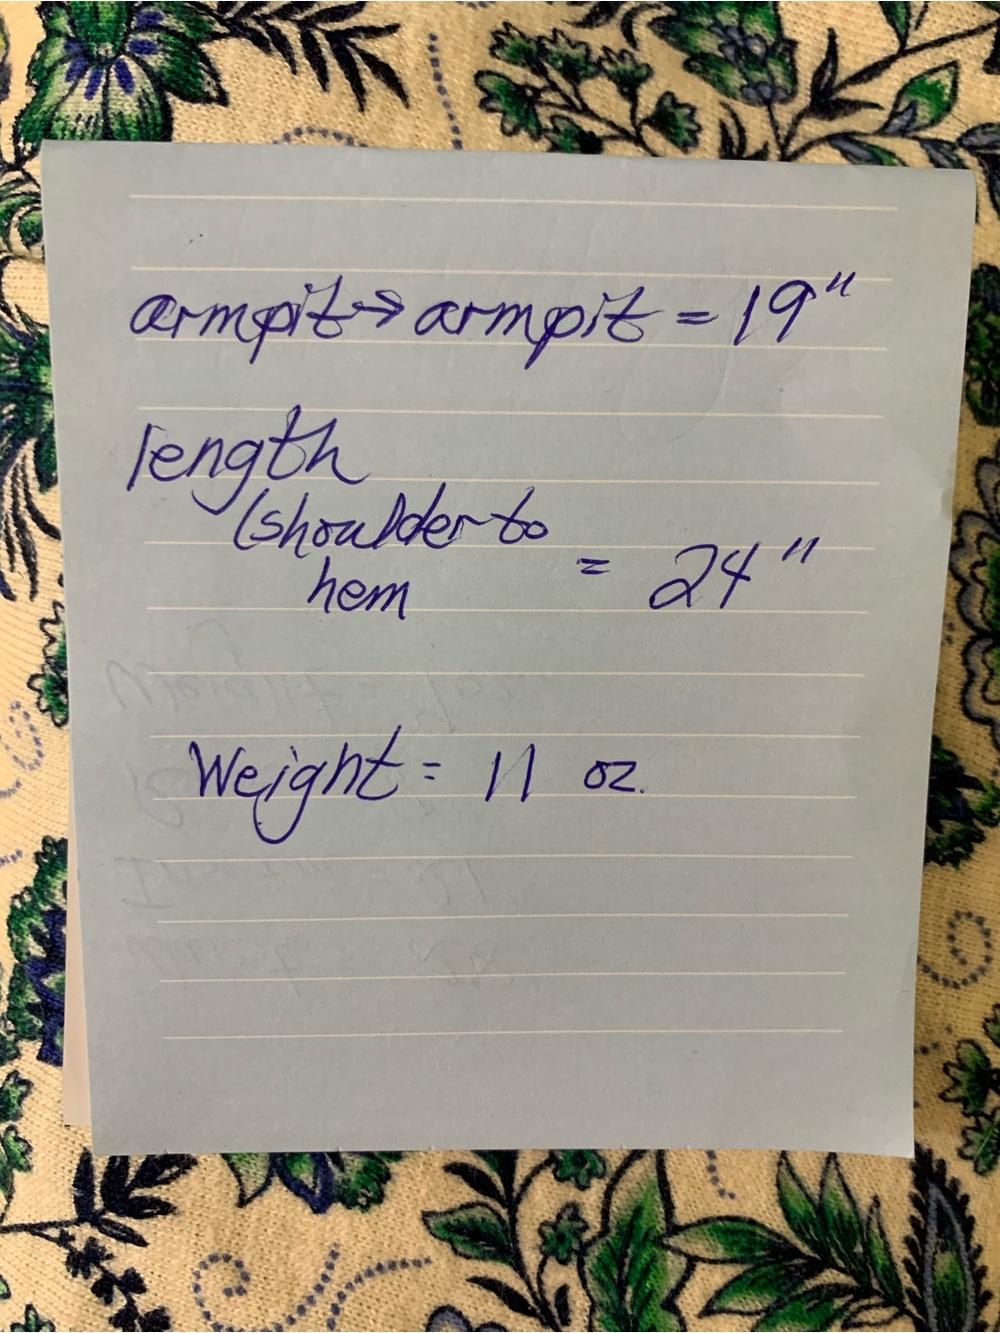 armpit → armpit = 19"
length
(shoulder to
hem = 24"
Weight = 11 oz.